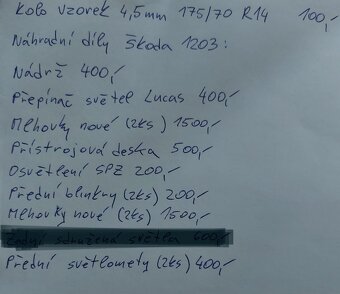 Kolo vzorek 4,5mm 175/70 R14 100,-
Náhradní díly Škoda 1203:
Nádrž 400,-
Přepínač světel Lucas 400,-
Mlhovky nové (2ks) 1500,-
Přístrojová deska 500,-
Osvětlení SPZ 200,-
Přední blinkry (2ks) 200,-
Mlhovky nové (2ks) 1500,-
Zadní sdružená světla 600,-
Přední světlomety (2ks) 400,-